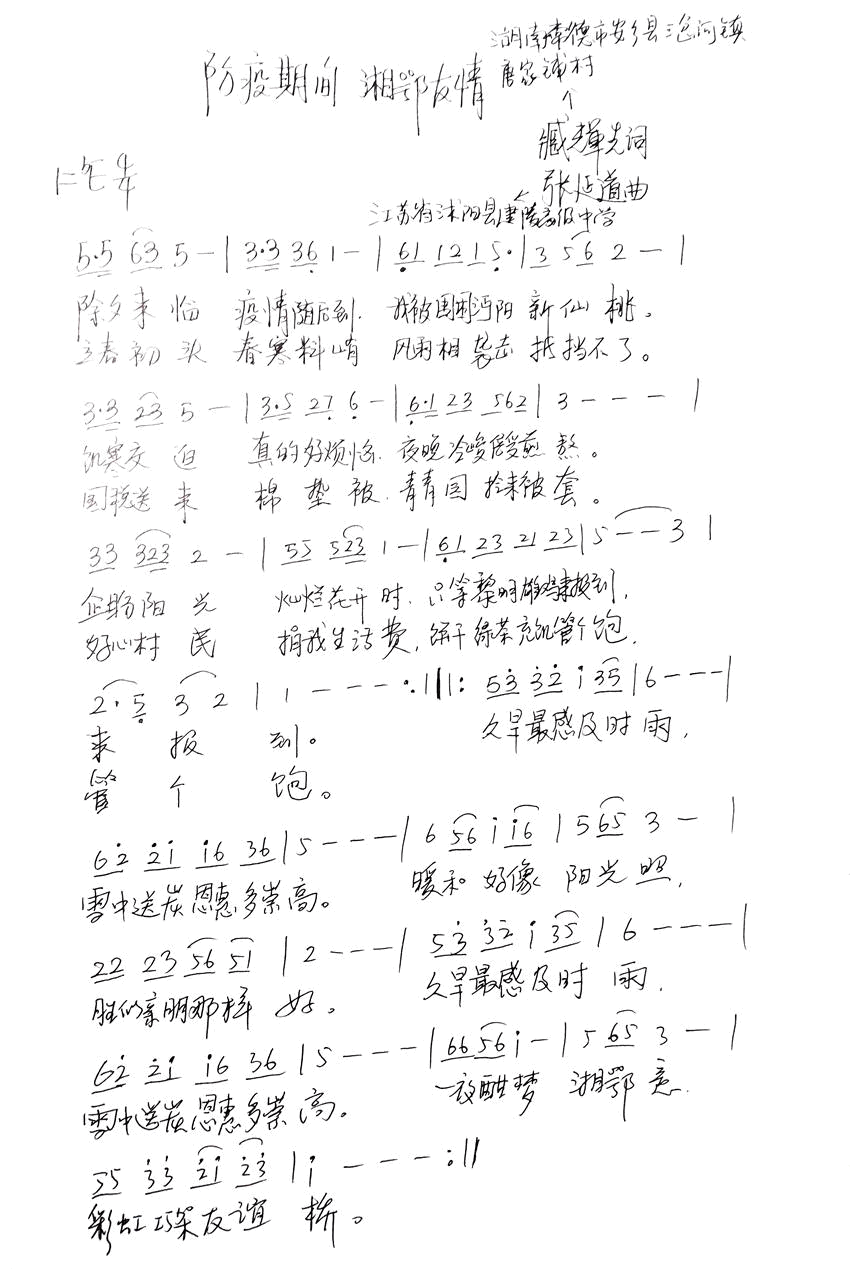 湖南常德市安乡县 河镇
防疫期间 湘鄂友情
唐家铺村
↑
臧辉先词
张延道曲
江苏省沭阳县建陵高级中学 ←
5·5 63 5 - | 3·3 36 1 - | 61 12 1 5· | 3 56 2 - |
除夕来临 疫情随后到. 我被围困沔阳 新仙桃。
立春初头 春寒料峭 风雨相袭击 抵挡不了。
3·3 23 5 - | 3·5 27 6 - | 6·1 23 562 | 3 - - - |
饥寒交迫 真的好烦恼. 夜晚冷 受煎熬。
国税送来 棉垫被. 青青国 被套。
33 323 2 - | 55 523 1 - | 61 23 21 23 | 5 - - 3 |
企盼阳光 灿烂花开时. 只等黎明雄鸡来报到,
好心村民 捐我生活费, 饼干绿茶充饥管个饱.
2·5 3 2 | 1 - - - :||: 53 32 i 35 | 6 - - - |
来报到。 久旱最感及时雨,
管个饱。
62 2i i6 36 | 5 - - - | 6 56 i i6 | 5 65 3 - |
雪中送炭恩惠多崇高。 暖和好像 阳光照,
22 23 56 51 | 2 - - - | 53 32 i 35 | 6 - - - |
胜似亲朋那样好。 久旱最感及时雨.
62 2i i6 36 | 5 - - - | 66 56 i - | 5 65 3 - |
雪中送炭恩惠多崇高。 一夜酣梦 湘鄂意.
55 33 2i 23 | i - - - :||
彩虹巧架友谊桥。